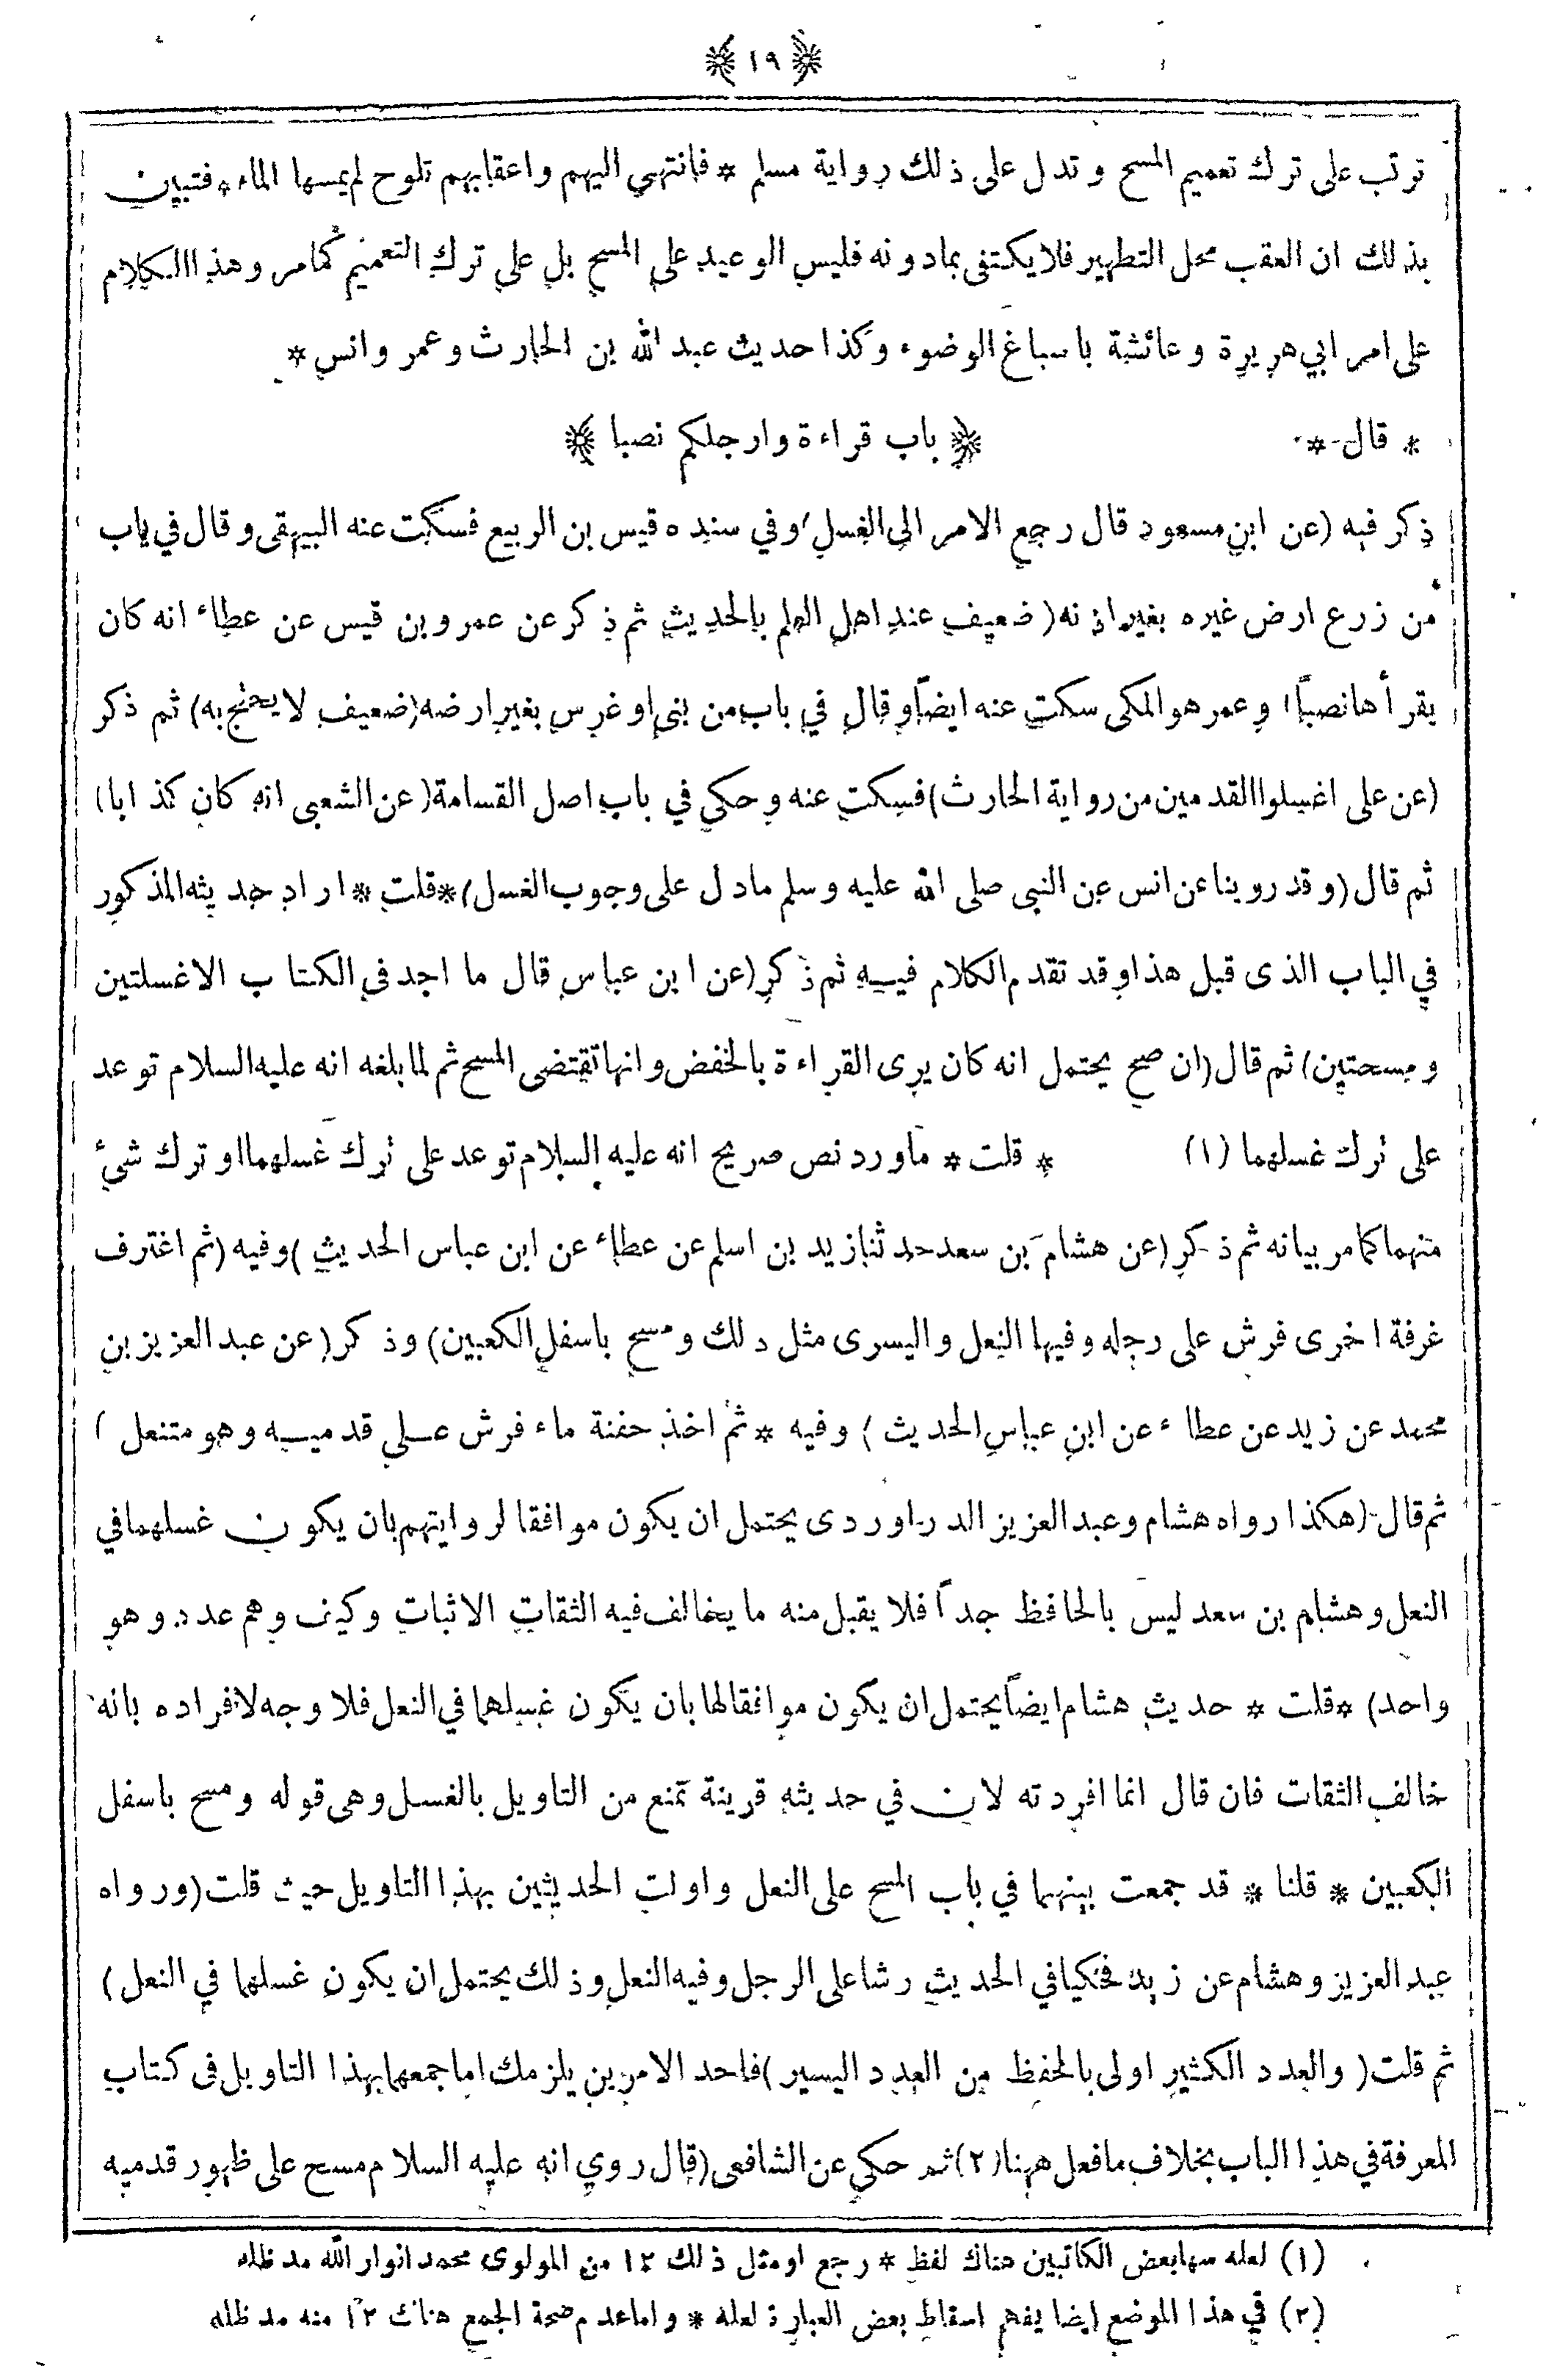 ﴿ ١٩ ﴾
ترتب على ترك تعميم المسح وتدل على ذلك رواية مسلم * فانتهى اليهم واعقابهم تلوح لم يمسها الماء * فتبين
بذلك ان العقب محل التطهير فلا يكتفى بمادونه فليس الوعيد على المسح بل على ترك التعميم كمامر وهذا الكلام
على امر ابي هريرة وعائشة باسباغ الوضوء وكذا حديث عبد الله بن الحارث وعمر وانس *
* قال * ﴿ باب قراءة وارجلكم نصبا ﴾
ذكر فيه (عن ابن مسعود قال رجع الامر الى الغسل) وفي سنده قيس بن الربيع فسكت عنه البيهقى وقال في باب
من زرع ارض غيره بغير اذنه (ضعيف عند اهل العلم بالحديث ثم ذكر عن عمرو بن قيس عن عطاء انه كان
يقرأها نصباً) وعمر هو المكى سكت عنه ايضاً وقال في باب من بنى او غرس بغير ارضه (ضعيف لا يحتج به) ثم ذكر
(عن على اغسلوا القدمين من رواية الحارث) فسكت عنه وحكى في باب اصل القسامة (عن الشعبى انه كان كذابا)
ثم قال (وقد روينا عن انس عن النبى صلى الله عليه وسلم مادل على وجوب الغسل) * قلت * اراد حديثه المذكور
في الباب الذى قبل هذا وقد تقدم الكلام فيه ثم ذكر (عن ابن عباس قال ما اجد في الكتاب الاغسلتين
ومسحتين) ثم قال (ان صح يحتمل انه كان يرى القراءة بالخفض وانها تقتضى المسح ثم لما بلغه انه عليه السلام توعد
على ترك غسلهما (١) * قلت * ماورد نص صريح انه عليه السلام توعد على ترك غسلهما او ترك شئ
منهما كمامر بيانه ثم ذكر (عن هشام بن سعد حدثنا زيد بن اسلم عن عطاء عن ابن عباس الحديث) وفيه (ثم اغترف
غرفة اخرى فرش على رجله وفيها النعل واليسرى مثل ذلك ومسح باسفل الكعبين) وذكر (عن عبد العزيز بن
محمد عن زيد عن عطاء عن ابن عباس الحديث) وفيه * ثم اخذ حفنة ماء فرش على قدميه وهو متنعل)
ثم قال (هكذا رواه هشام وعبد العزيز الدراوردى يحتمل ان يكون موافقا لروايتهم بان يكون غسلهما في
النعل وهشام بن سعد ليس بالحافظ جداً فلا يقبل منه ما يخالف فيه الثقات الاثبات وكيف وهم عدد وهو
واحد) * قلت * حديث هشام ايضاً يحتمل ان يكون موافقا لها بان يكون غسلهما في النعل فلا وجه لافراده بانه
خالف الثقات فان قال انما افردته لان في حديثه قرينة تمنع من التاويل بالغسل وهى قوله ومسح باسفل
الكعبين * قلنا * قد جمعت بينهما في باب المسح على النعل واولت الحديثين بهذا التاويل حيث قلت (ورواه
عبد العزيز وهشام عن زيد فحكيا في الحديث رشا على الرجل وفيه النعل وذلك يحتمل ان يكون غسلها في النعل)
ثم قلت (والعدد الكثير اولى بالحفظ من العدد اليسير) فاحد الامرين يلزمك اما جمعها بهذا التاويل في كتاب
المعرفة في هذا الباب بخلاف مافعل ههنا (٢) ثم حكى عن الشافعى (قال روي انه عليه السلام مسح على ظهور قدميه
(١) لعله سها بعض الكاتبين هناك لفظ * رجع او مثل ذلك ١٢ من المولوى محمد انوار الله مد ظله
(٢) في هذا الموضع ايضا يفهم اسقاط بعض العبارة لعله * واما عدم صحة الجمع هناك ١٢ منه مد ظله